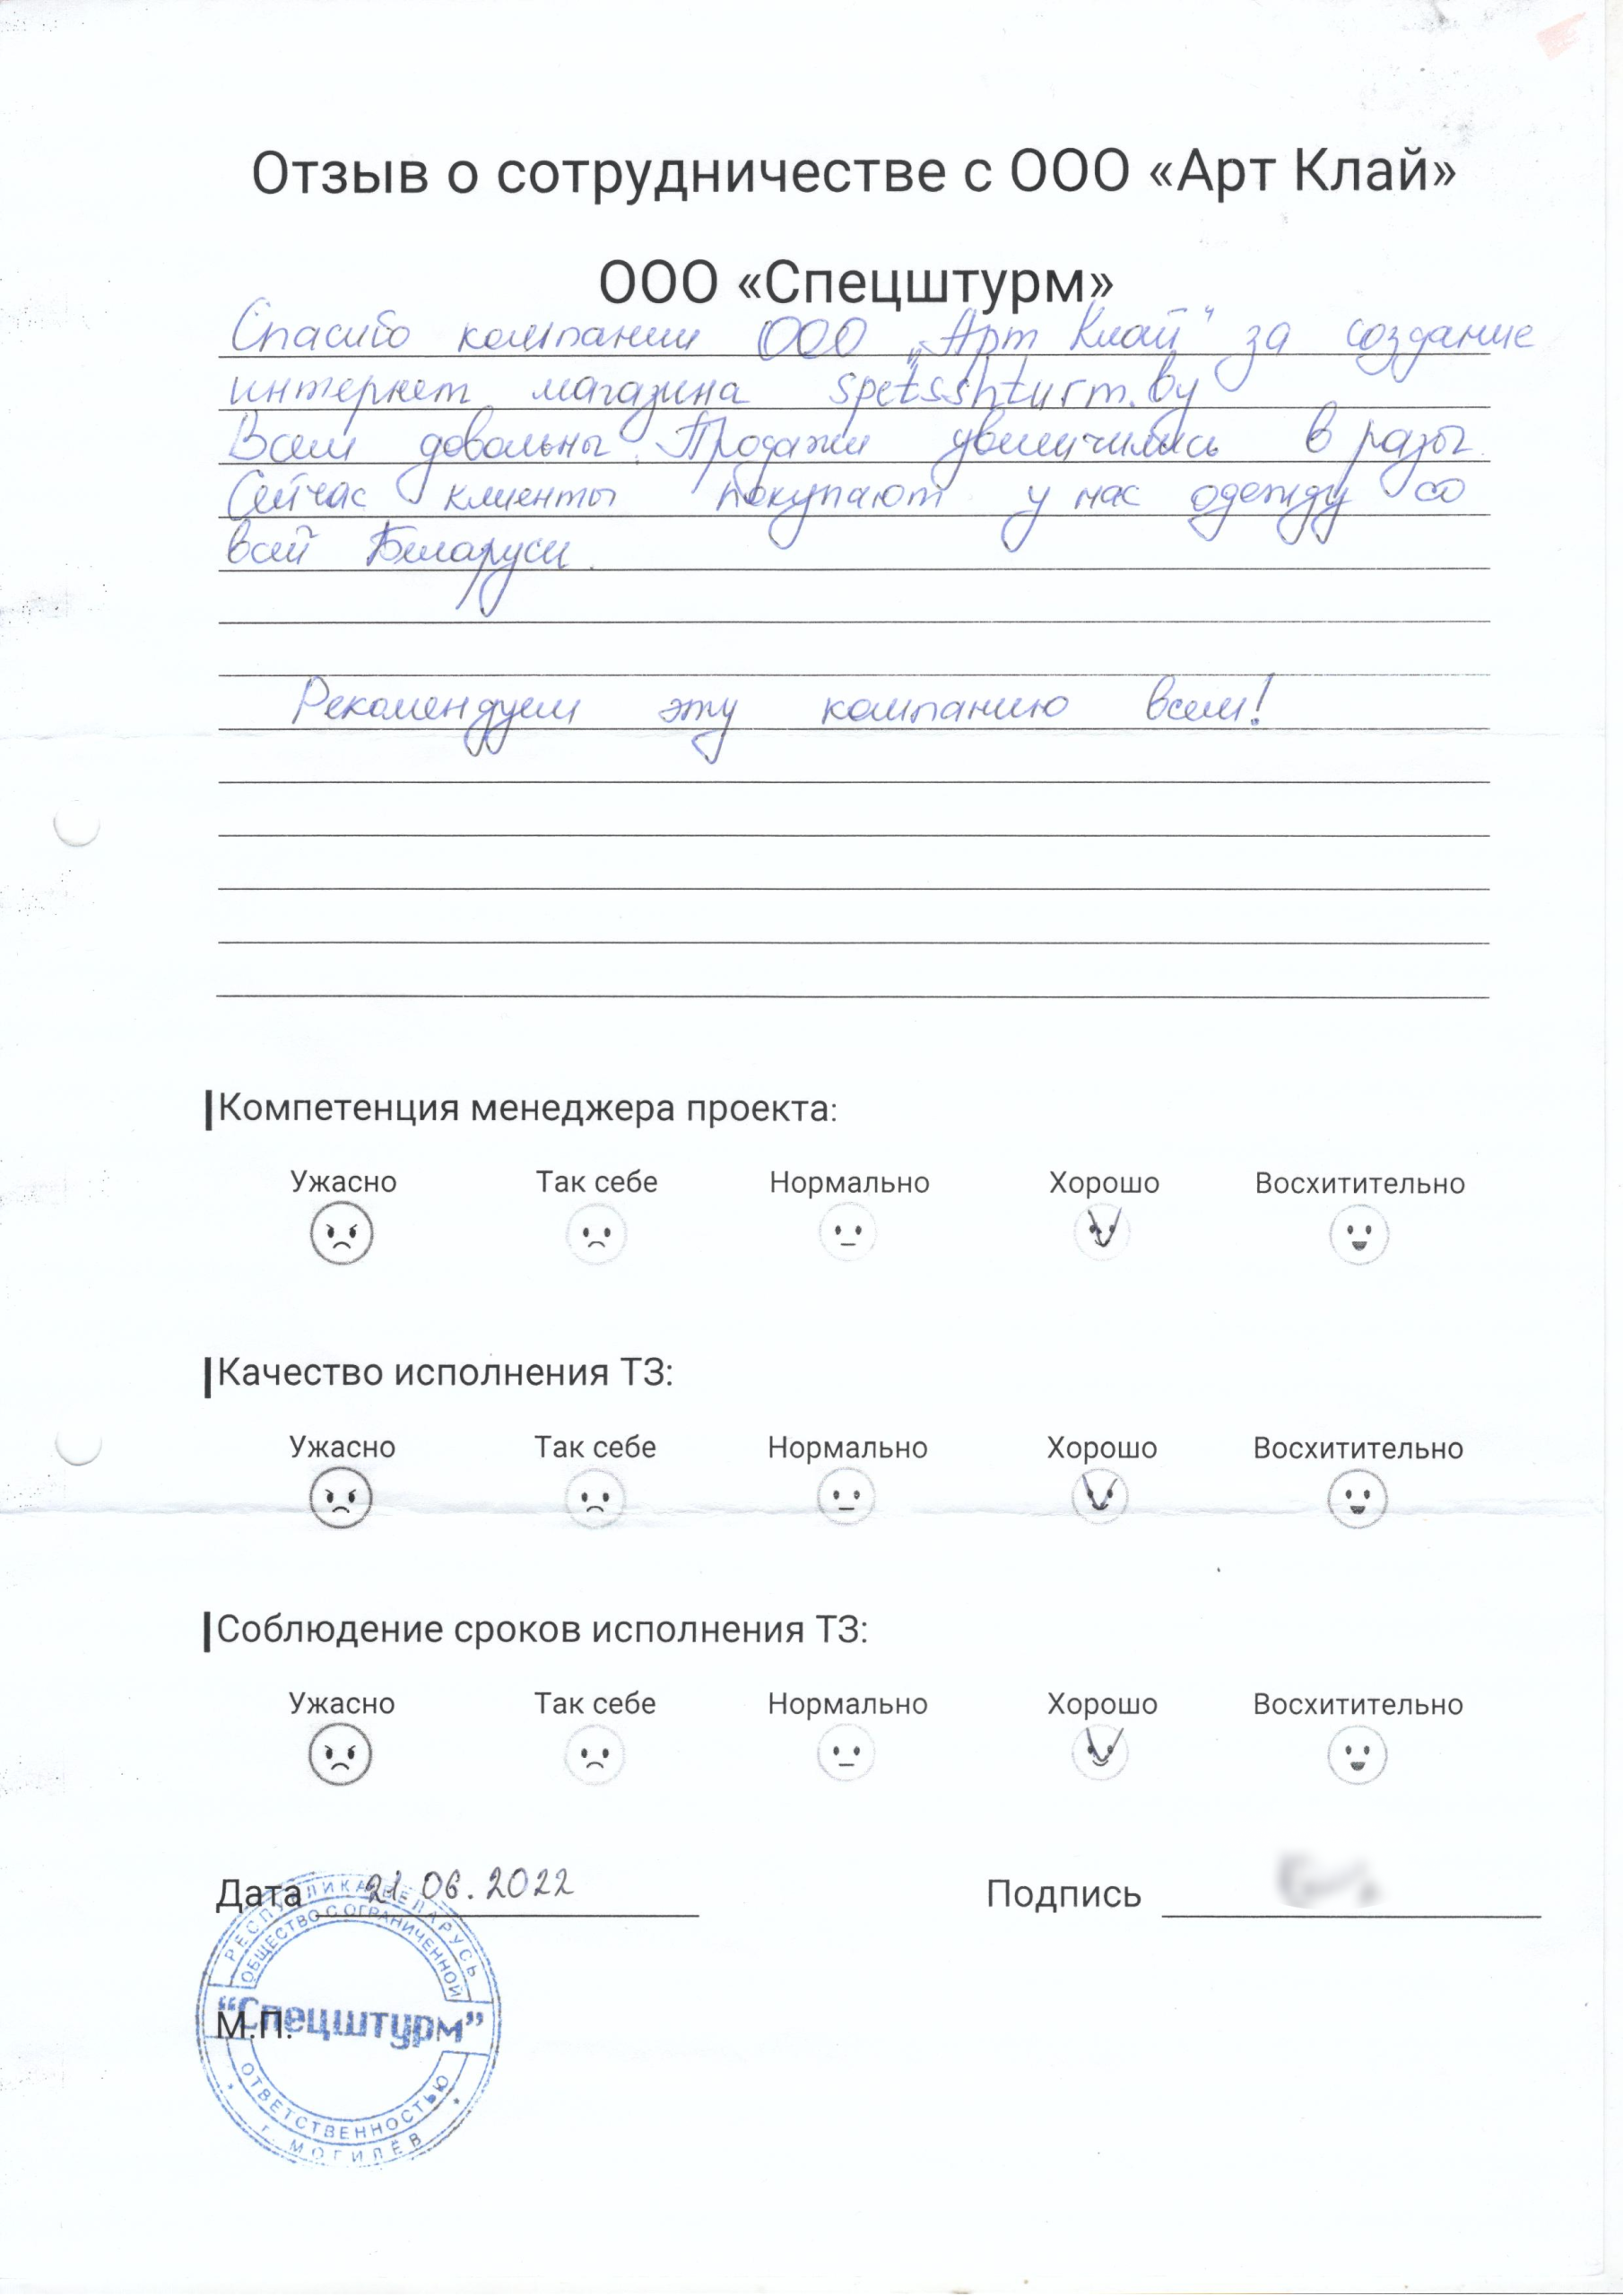 Отзыв о сотрудничестве с ООО «Арт Клай»
ООО «Спецштурм»
Спасибо компании ООО „Арт Клай" за создание
интернет магазина spetsshturm.by
Всем довольны. Продажи увеличились в разы.
Сейчас клиенты покупают у нас одежду со
всей Беларуси.
Рекомендуем эту компанию всем!
Компетенция менеджера проекта:
Ужасно Так себе Нормально Хорошо Восхитительно
Качество исполнения ТЗ:
Ужасно Так себе Нормально Хорошо Восхитительно
Соблюдение сроков исполнения ТЗ:
Ужасно Так себе Нормально Хорошо Восхитительно
Дата 21.06.2022 Подпись
М.П.
РЕСПУБЛИКА БЕЛАРУСЬ
ОБЩЕСТВО С ОГРАНИЧЕННОЙ
“Спецштурм”
ОТВЕТСТВЕННОСТЬЮ
г. МОГИЛЁВ